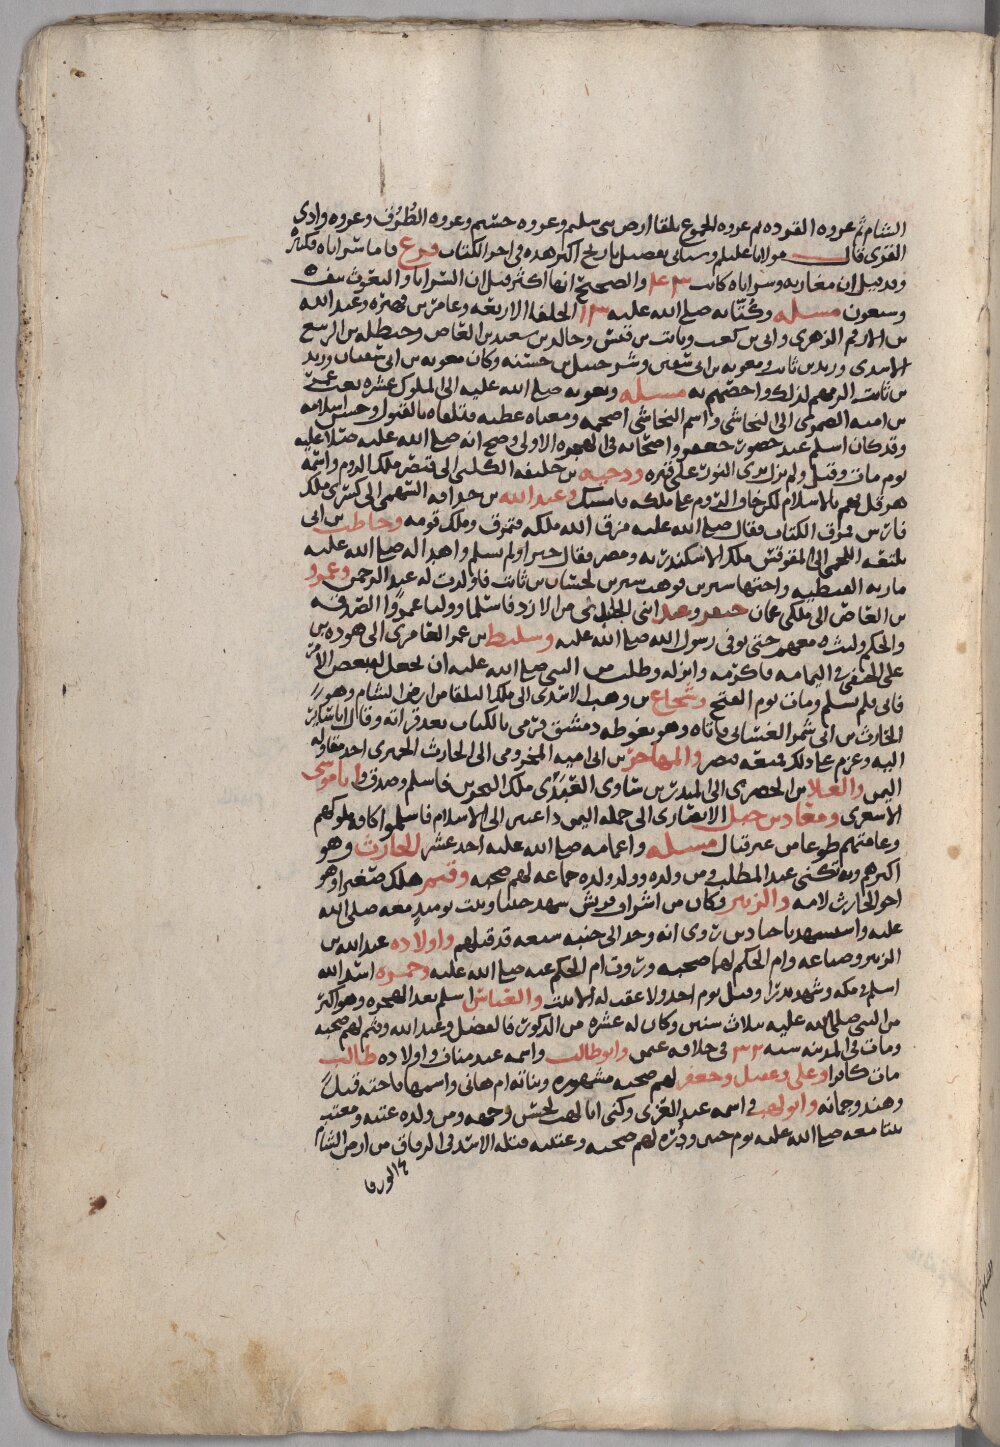 الشام ثم غزوه القرده ثم غزوه الجموع تلقا ارض بني سليم وغزوه حسمى وغزوه الطرف وغزوه وادي
القرى قال مولانا عليلم وسياتي تفصيل تاريخ اكثر هذه في اخر الكتاب فرع فاما سراياه فكثيره
وقد قيل ان مغازيه وسراياه كانت والصحيح انها اكثر قيل ان السرايا والبعوث نيف
وسبعون مسله وكتابه صلى الله عليه الخلفا الاربعه وعامر بن فهيره وعبد الله
بن الارقم الزهري وابي بن كعب وثابت بن قيس وخالد بن سعيد بن العاص وحنظله بن الربيع
الاسدي وزيد بن ثابت ومعويه بن ابي سفين وشرحبيل بن حسنه وكان معويه بن ابي سفيان وزيد
بن ثابت الزمهم لذلك واخصهم به مسله وبعوثه صلى الله عليه الى الملوك عشره بعث عمرو
بن اميه الضمري الى النجاشي واسم النجاشي اصحمه ومعناه عطيه فتلقاه بالقبول وحسن اسلامه
وقد كان اسلم عند حضور جعفر واصحابه في الهجره الاولى وصح انه صلى الله عليه صلا عليه
يوم مات وقيل ولم يزل يرى النور على قبره ودحيه بن خليفه الكلبي الى قيصر ملك الروم واسمه
هرقل فهم بالاسلام لكن خاف الروم على ملكه فامسك وعبد الله بن حذافه السهمي الى كسرى ملك
فارس فمزق الكتاب فقال صلى الله عليه مزق الله ملكه فتمزق وملك قومه وحاطب بن ابي
بلتعه اللخمي الى المقوقس ملك الاسكندريه ومصر فقال خيرا ولم يسلم واهدا له صلى الله عليه
ماريه القبطيه واختها سيرين فوهب سيرين لحسان بن ثابت فاولدت له عبد الرحمن وعمرو
بن العاص الى ملكي عمان جيفر وعبد ابني الجلندى من الازد فاسلما ووليا عمروا الصدقه
والحكم ولبث معهم حتى توفي رسول الله صلى الله عليه وسليط بن عمر العامري الى هوذه بن
علي الحنفي في اليمامه فاكرمه وانزله وطلب من النبي صلى الله عليه ان يجعل له بعض الامر
فابى فلم يسلم ومات يوم الفتح وشجاع بن وهب الاسدي الى ملك البلقا من ارض الشام وهو
الحارث بن ابي شمر الغساني فاتاه وهو بغوطه دمشق فرمى بالكتاب بعد قراته وقال انا ساير
اليه وعزم على ذلك فمنعه قيصر والمهاجر بن ابي اميه المخزومي الى الحارث الحميري احد مقاوله
اليمن والعلا بن الحضرمي الى المنذر بن ساوى العبدي ملك البحرين فاسلم وصدق وابا موسى
الاشعري ومعاذ بن جبل الانصاري الى جمله اليمن داعيين الى الاسلام فاسلموا كافه ملوكهم
وعامتهم طوعا من غير قتال مسله واعمامه صلى الله عليه احد عشر الحارث وهو
اكبرهم وبه تكنى عبد المطلب ومن ولده وولد ولده جماعه لهم صحبه وقثم هلك صغيرا وهو
اخو الحارث لامه والزبير وكان من اشراف قريش شهد حنينا وثبت يوميذ معه صلى الله
عليه واستشهد باجنادين روي انه وجد الى جنبه سبعه قد قتلهم واولاده عبد الله بن
الزبير وضباعه وام الحكم لهما صحبه وروت ام الحكم عنه صلى الله عليه وحمزه اسد الله
اسلم في مكه وشهد بدرا وقتل يوم احد ولا عقب له الا بنت والعباس اسلم بعد الهجره وهو اكبر
من النبي صلى الله عليه بثلاث سنين وكان له عشره من الذكور فالفضل وعبد الله وقثم لهم صحبه
ومات في المدينه سنه ٣٢ في خلافه عثمن وابو طالب واسمه عبد مناف واولاده طالب
مات كافرا وعلي وعقيل وجعفر لهم صحبه مشهوره وبناته ام هاني واسمها فاخته قيل
وهند وجمانه وابو لهب واسمه عبد العزى وكني ابا لهب لحسن وجهه ومن ولده عتبه ومعتب
ثبتا معه صلى الله عليه يوم حنين ودره لهم صحبه وعتيبه قتله الاسد في الزرقا من ارض الشام